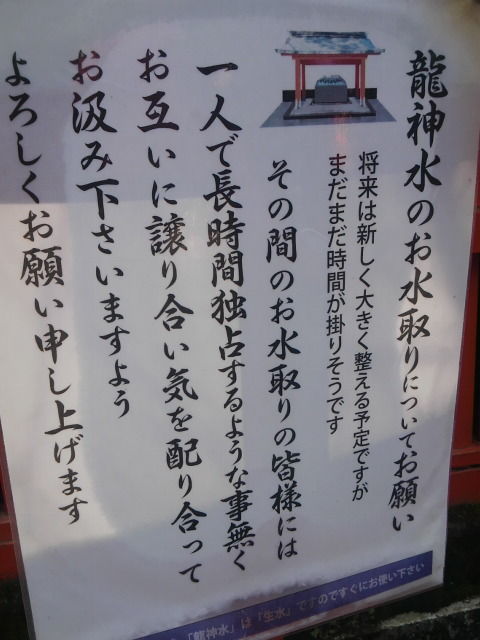 龍神水のお水取りについてお願い
将来は新しく大きく整える予定ですが
まだまだ時間が掛りそうです
その間のお水取りの皆様には
一人で長時間独占するような事無く
お互いに譲り合い気を配り合って
お汲み下さいますよう
よろしくお願い申し上げます
「龍神水」は「生水」ですのですぐにお使い下さい